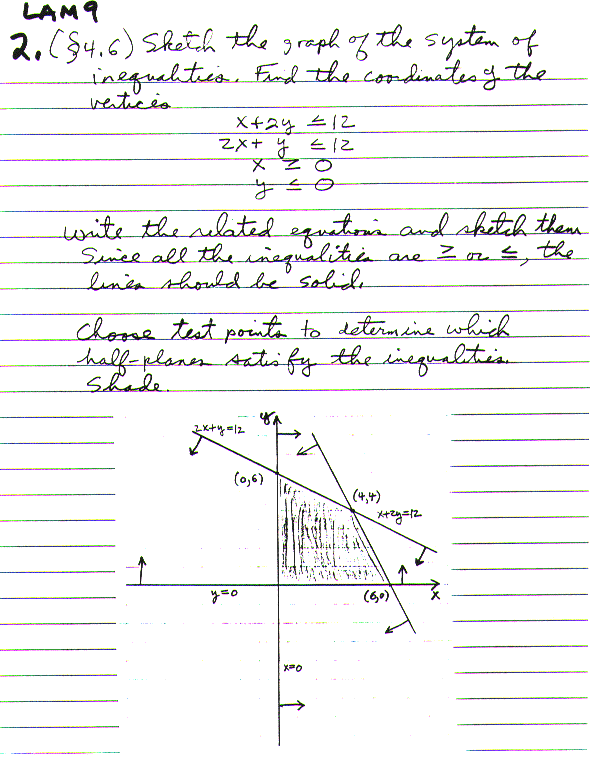 LAM 9
2. (§4.6) Sketch the graph of the system of
inequalities. Find the coordinates of the
vertices
x+2y ≤ 12
2x+ y ≤ 12
x ≥ 0
y ≤ 0
Write the related equations and sketch them
Since all the inequalities are ≥ or ≤, the
lines should be solid.
Choose test points to determine which
half-planes satisfy the inequalities.
Shade.
y
2x+y=12
(0,6)
(4,4)
x+2y=12
y=0
(6,0)
x
x=0